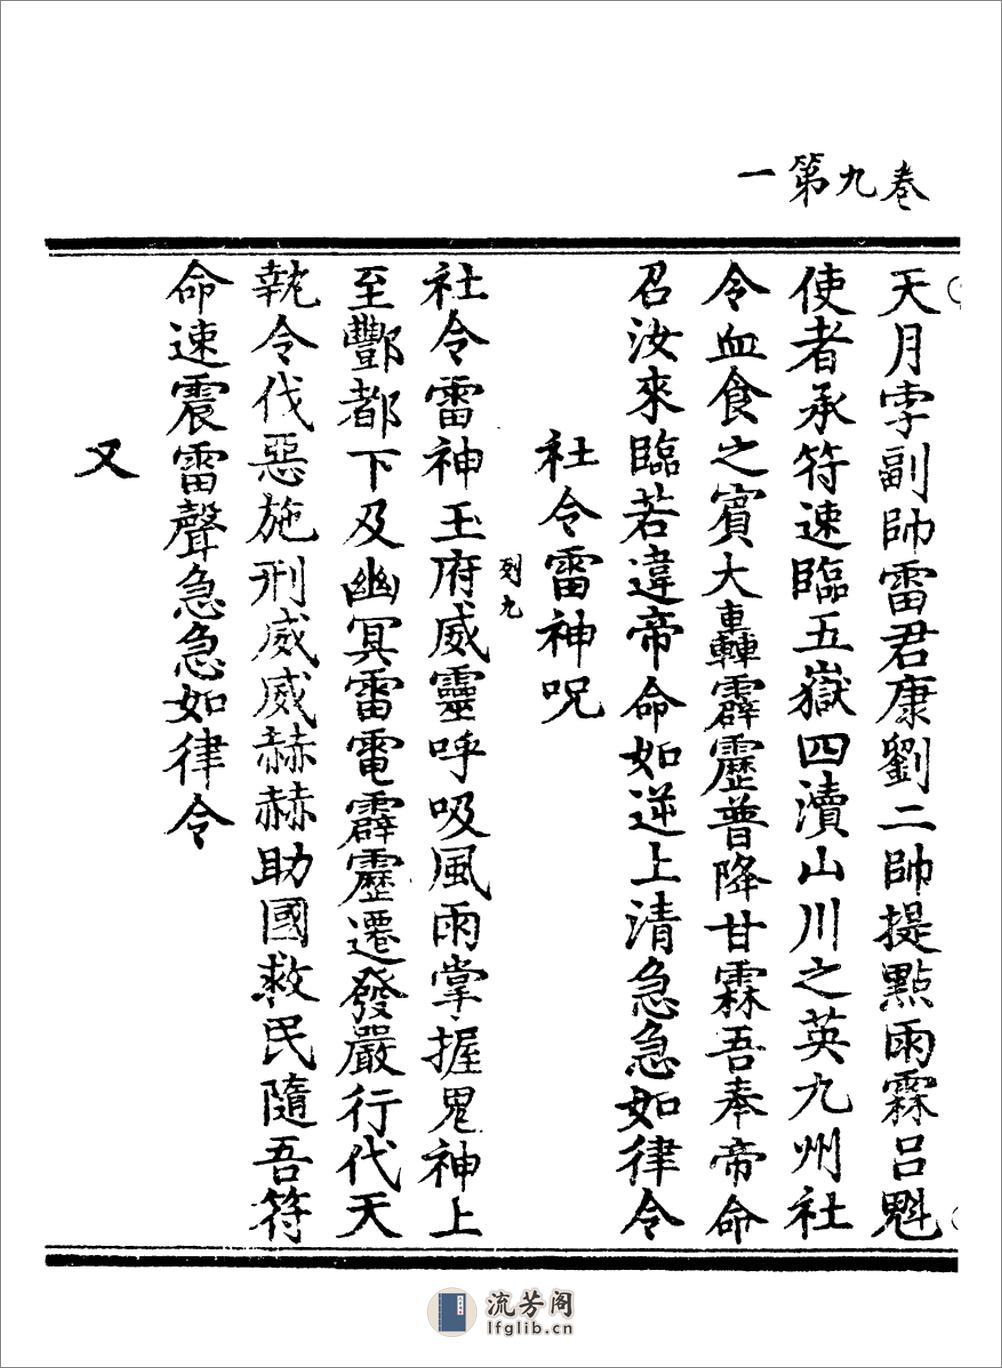 一第九卷
天月孛副帥雷君康劉二帥提點雨霖呂魁
使者承符速臨五嶽四瀆山川之英九州社
令血食之賓大轟霹靂普降甘霖吾奉帝命
召汝來臨若違帝命如逆上清急急如律令
社令雷神呪
列九
社令雷神玉府威靈呼吸風雨掌握鬼神上
至酆都下及幽冥雷電霹靂遷發嚴行代天
執令伐惡施刑威威赫赫助國救民隨吾符
命速震雷聲急急如律令
又
流芳阁
lfglib.cn